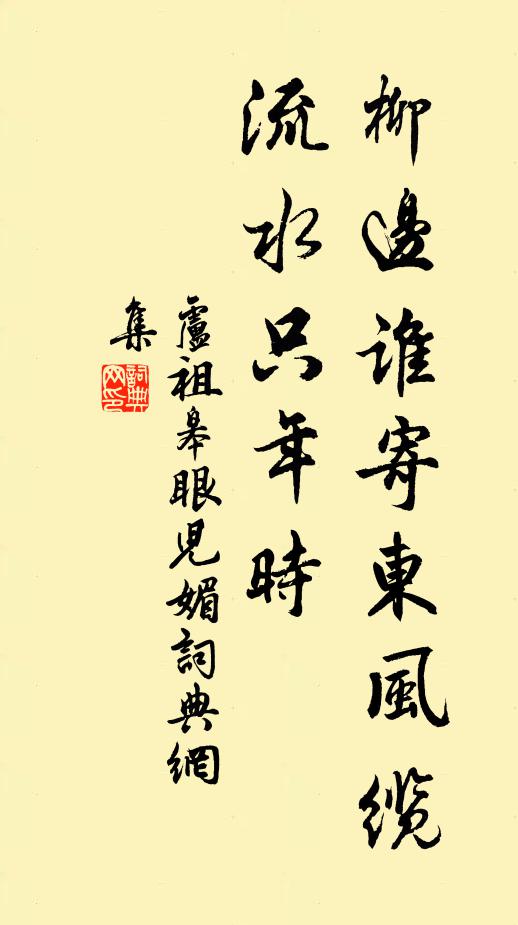 柳邊誰寄東風纜
流水只年時
盧祖皋眼児媚詞典網
集
詞典网印